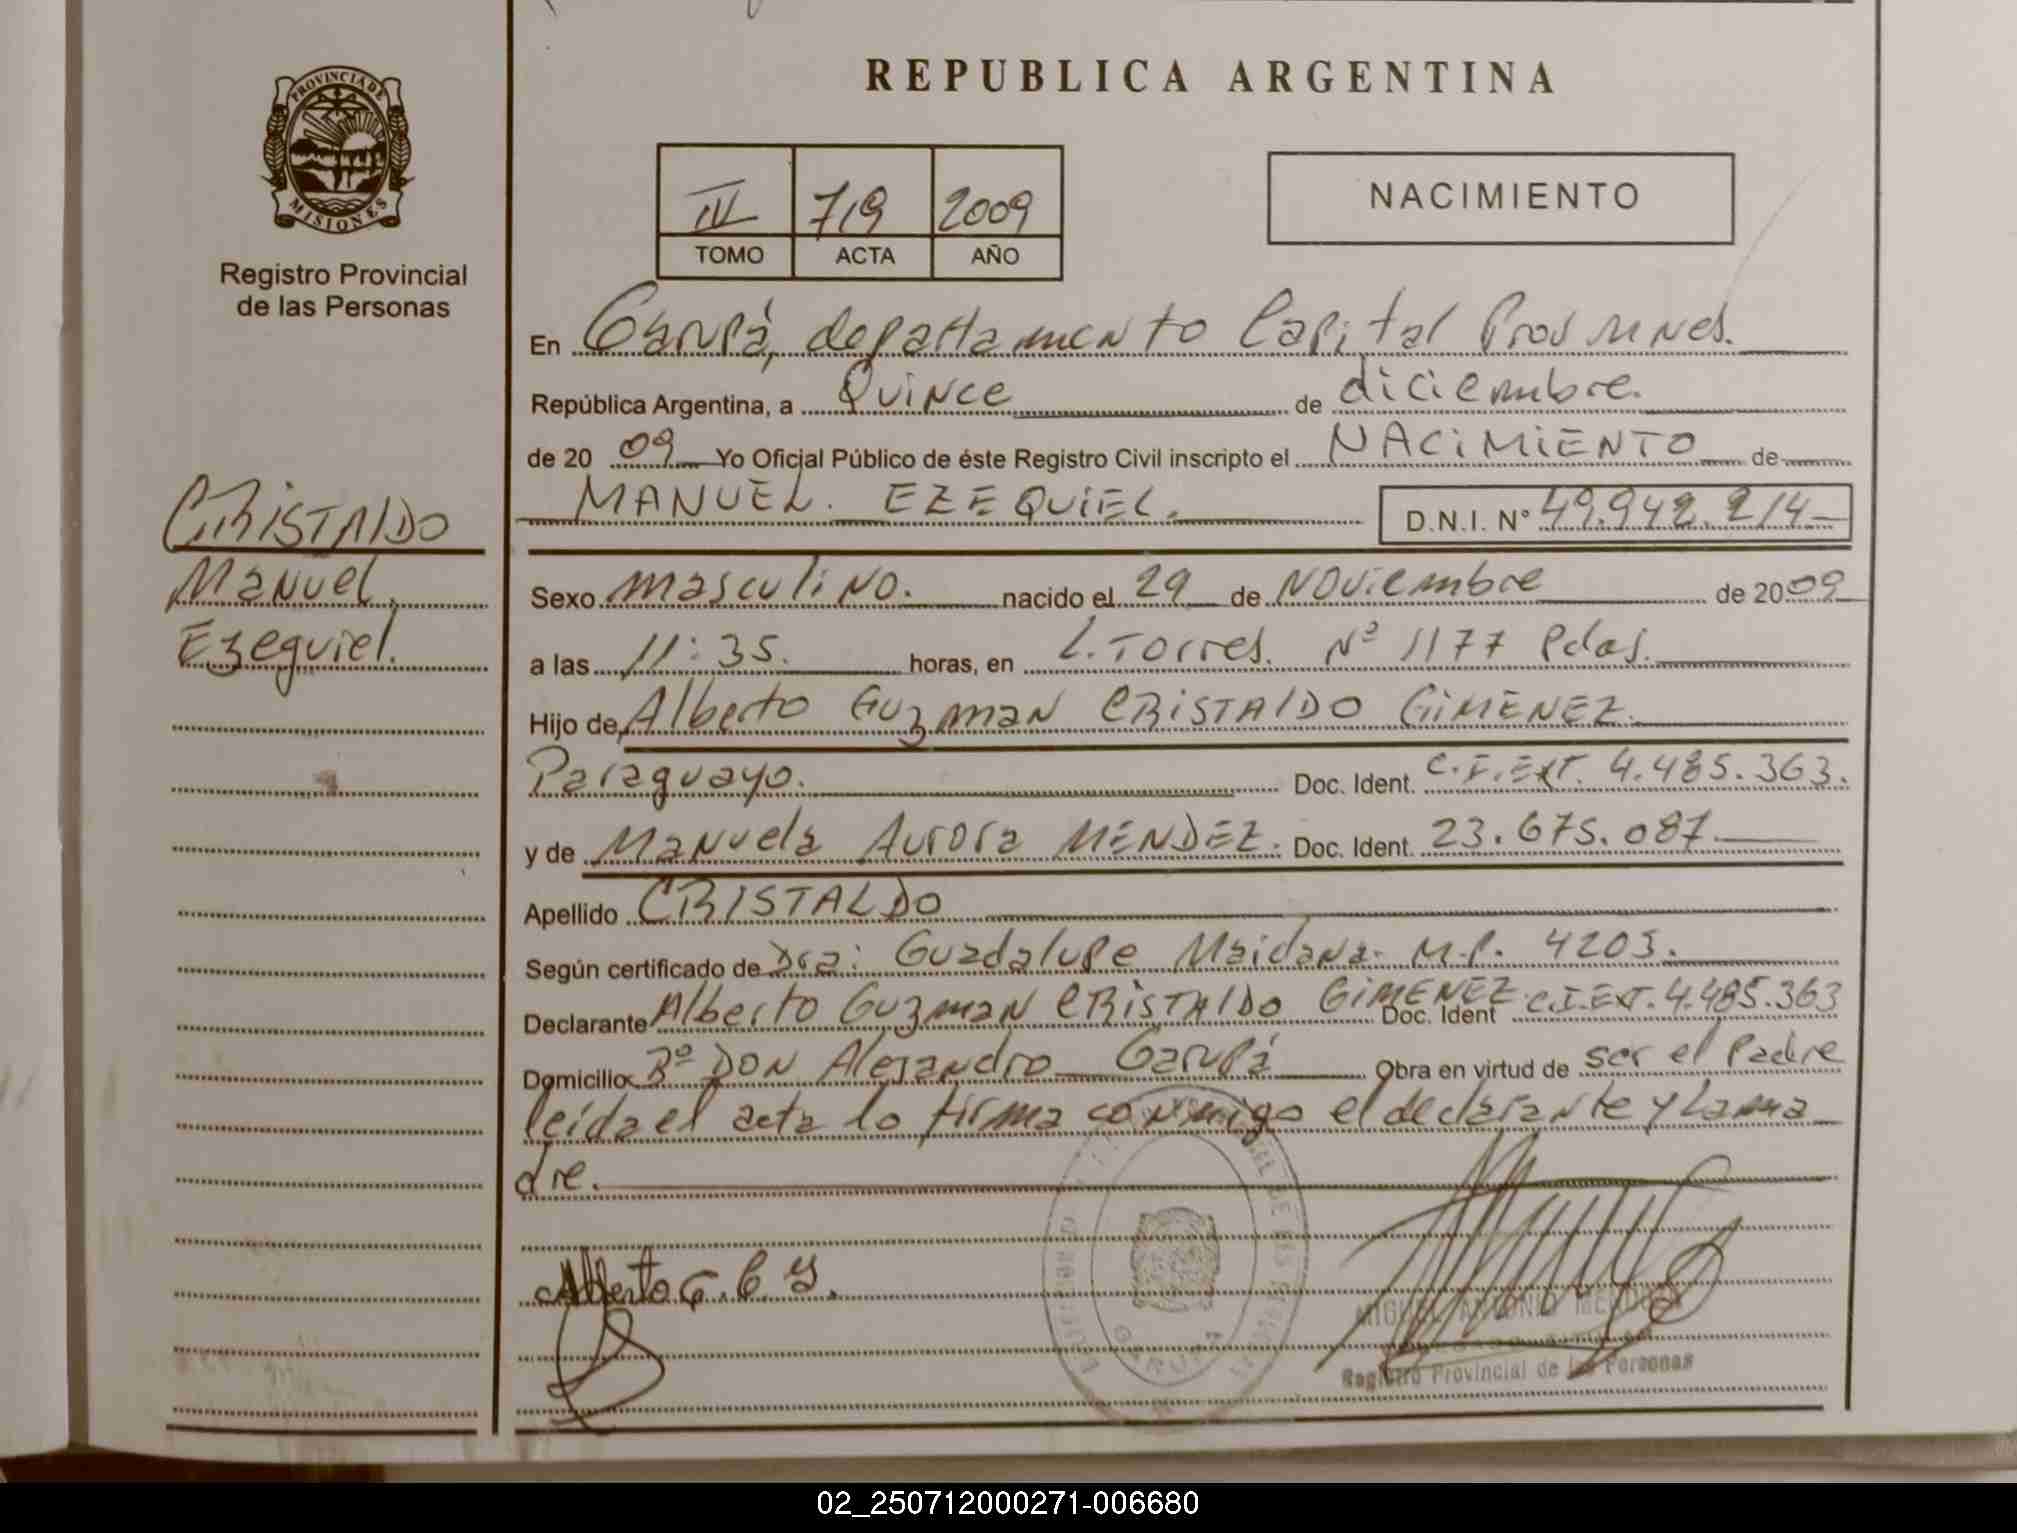 REPUBLICA ARGENTINA
PROVINCIA DE MISIONES
Registro Provincial
de las Personas
IV 719 2009
TOMO ACTA AÑO
NACIMIENTO
En Garupá, departamento Capital Prov Mnes.
República Argentina, a Quince de diciembre.
de 20 09 Yo Oficial Público de éste Registro Civil inscripto el NACIMIENTO de
MANUEL. EZEQUIEL. D.N.I. Nº 49.942.214
CRISTALDO
Manuel,
Ezequiel.
Sexo masculino. nacido el 29 de Noviembre de 2009
a las 11:35. horas, en L. Torres. Nº 1177 Pdas.
Hijo de Alberto Guzman CRISTALDO GIMENEZ.
Paraguayo. Doc. Ident. C.I.Ext. 4.485.363.
y de Manuela Aurora MENDEZ. Doc. Ident. 23.675.087.
Apellido CRISTALDO
Según certificado de Dra: Guadalupe Maidana. M.P. 4203.
Declarante Alberto Guzman CRISTALDO GIMENEZ. Doc. Ident C.I.EXT. 4.485.363
Domicilio Bº DON Alejandro Garupá Obra en virtud de ser el Padre
leída el acta lo firma conmigo el declarante y La ma
dre.
Alberto G. C. G.
GARUPA
MIGUEL ANTONIO
Registro Provincial de las Personas
02_250712000271-006680